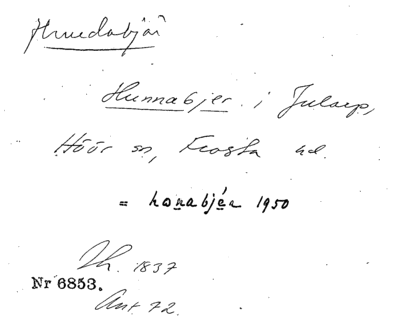 Hunnabjer i Jularp,
Höör sn, Frosta hd.
= honabjér 1950
Th. 1837
Nr 6853.
Ant. 72.